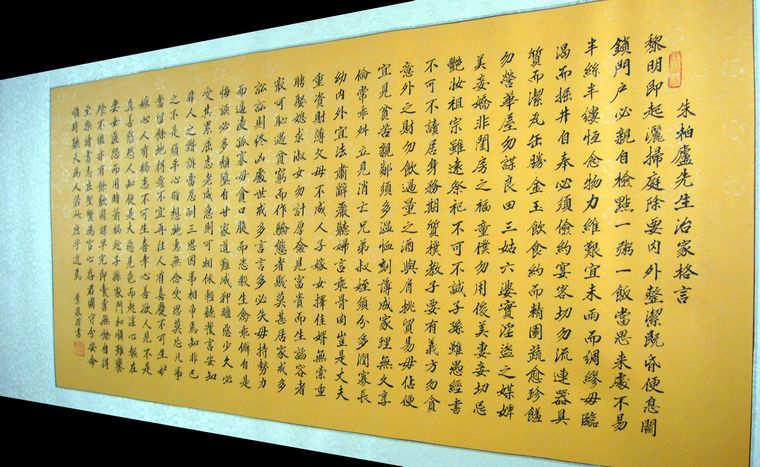 朱柏廬先生治家格言
黎明即起灑掃庭除要內外整潔既昏便息關
鎖門戶必親自檢點一粥一飯當思來處不易
半絲半縷恆念物力維艱宜未雨而綢繆毋臨
渴而掘井自奉必須儉約宴客切勿流連器具
質而潔瓦缶勝金玉飲食約而精園蔬愈珍饈
勿營華屋勿謀良田三姑六婆實淫盜之媒婢
美妾嬌非閨房之福童僕勿用俊美妻妾切忌
艷妝祖宗雖遠祭祀不可不誠子孫雖愚經書
不可不讀居身務期質樸教子要有義方勿貪
意外之財勿飲過量之酒與肩挑貿易毋佔便
宜見貧苦親鄰須多溫恤刻薄成家理無久享
倫常乖舛立見消亡兄弟叔姪須分多潤寡長
幼內外宜法肅辭嚴聽婦言乖骨肉豈是丈夫
重資財薄父母不成人子嫁女擇佳婿無索重
聘娶媳求淑女勿計厚奩見富貴而生諂容者
最可恥遇貧窮而作驕態者賤莫甚居家戒多
訟訟則終凶處世戒多言言多必失毋恃勢力
而逼凌孤寡毋貪口腹而恣殺生禽乖僻自是
悔誤必多頹墮自甘家道難成狎暱惡少久必
受其累屈志老成急則可相依輕聽發言安知
非人之譖訴當忍耐三思因事相爭焉知非己
之不是須平心暗想施惠無念受恩莫忘凡事
當留餘地得意不宜再往人有喜慶不可生妒
嫉心人有禍患不可生喜幸心善欲人見不是
真善惡恐人知便是大惡見色而起淫心報在
妻女匿怨而用暗箭禍延子孫家門和順雖饔
飧不繼亦有餘歡國課早完即囊橐無餘自得
至樂讀書志在聖賢為官心存君國守分安命
順時聽天為人若此庶乎近焉 葉書